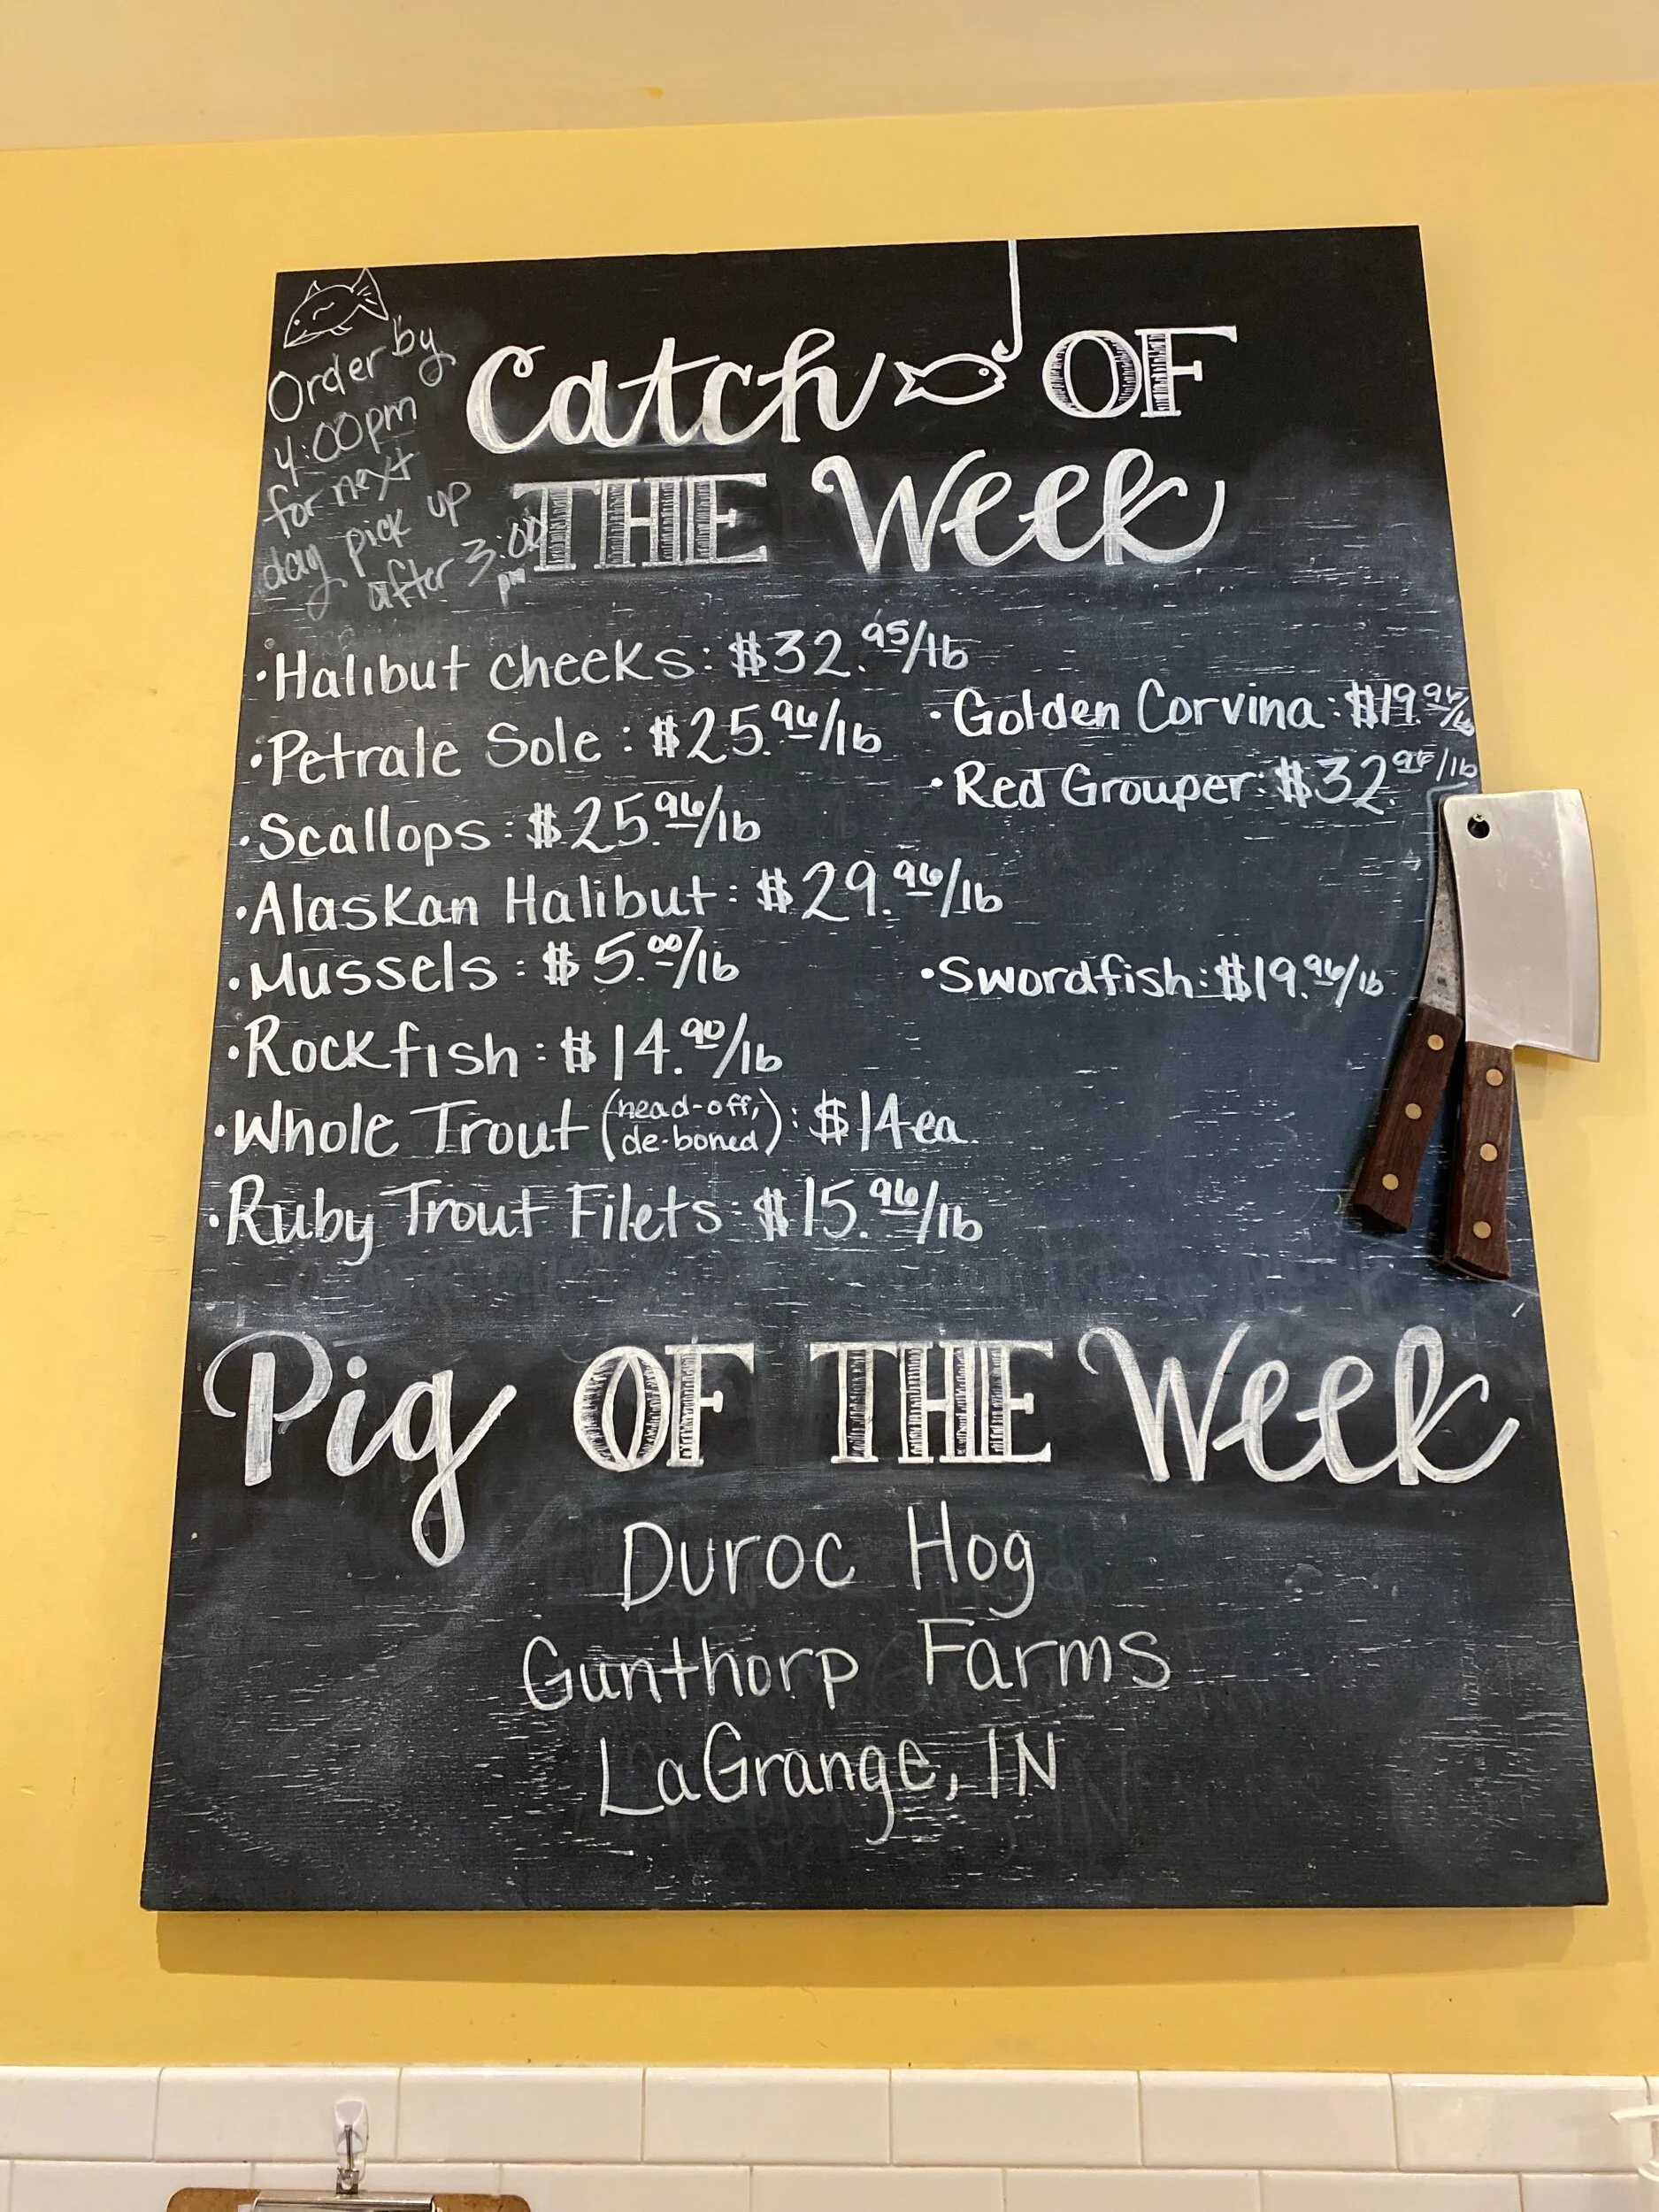 Order by
4:00pm
for next
day pick up
after 3:00
pm
Catch OF
THE Week
•Halibut cheeks: $32.95/lb
•Petrale Sole: $25.96/lb
•Scallops: $25.96/lb
•Alaskan Halibut: $29.96/lb
•Mussels: $5.00/lb
•Rockfish: $14.90/lb
•Whole Trout (head-off, de-boned): $14 ea.
•Ruby Trout Filets: $15.96/lb
•Golden Corvina: $19.96/lb
•Red Grouper: $32.96/lb
•Swordfish: $19.96/lb
Pig OF THE Week
Duroc Hog
Gunthorp Farms
LaGrange, IN